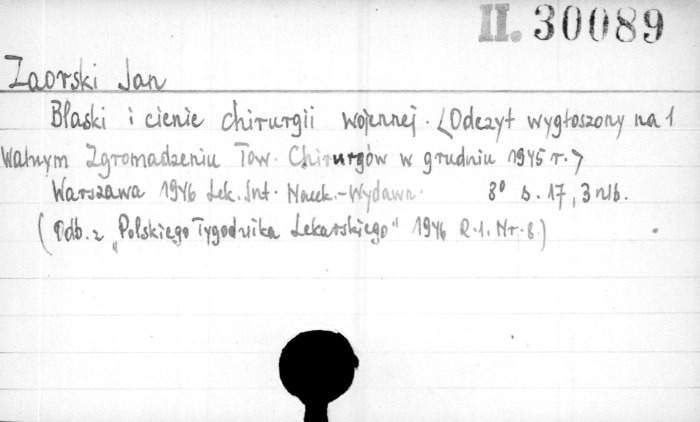 II. 30089
Zaorski Jan
Blaski i cienie chirurgii wojennej. <Odczyt wygłoszony na 1
Walnym Zgromadzeniu Tow. Chirurgów w grudniu 1945 r.>
Warszawa 1946 Lek. Inst. Nauk.-Wydawn. 8° s. 17, 3 nlb.
(Odb. z "Polskiego Tygodnika Lekarskiego" 1946 R.1. Nr. 8.)